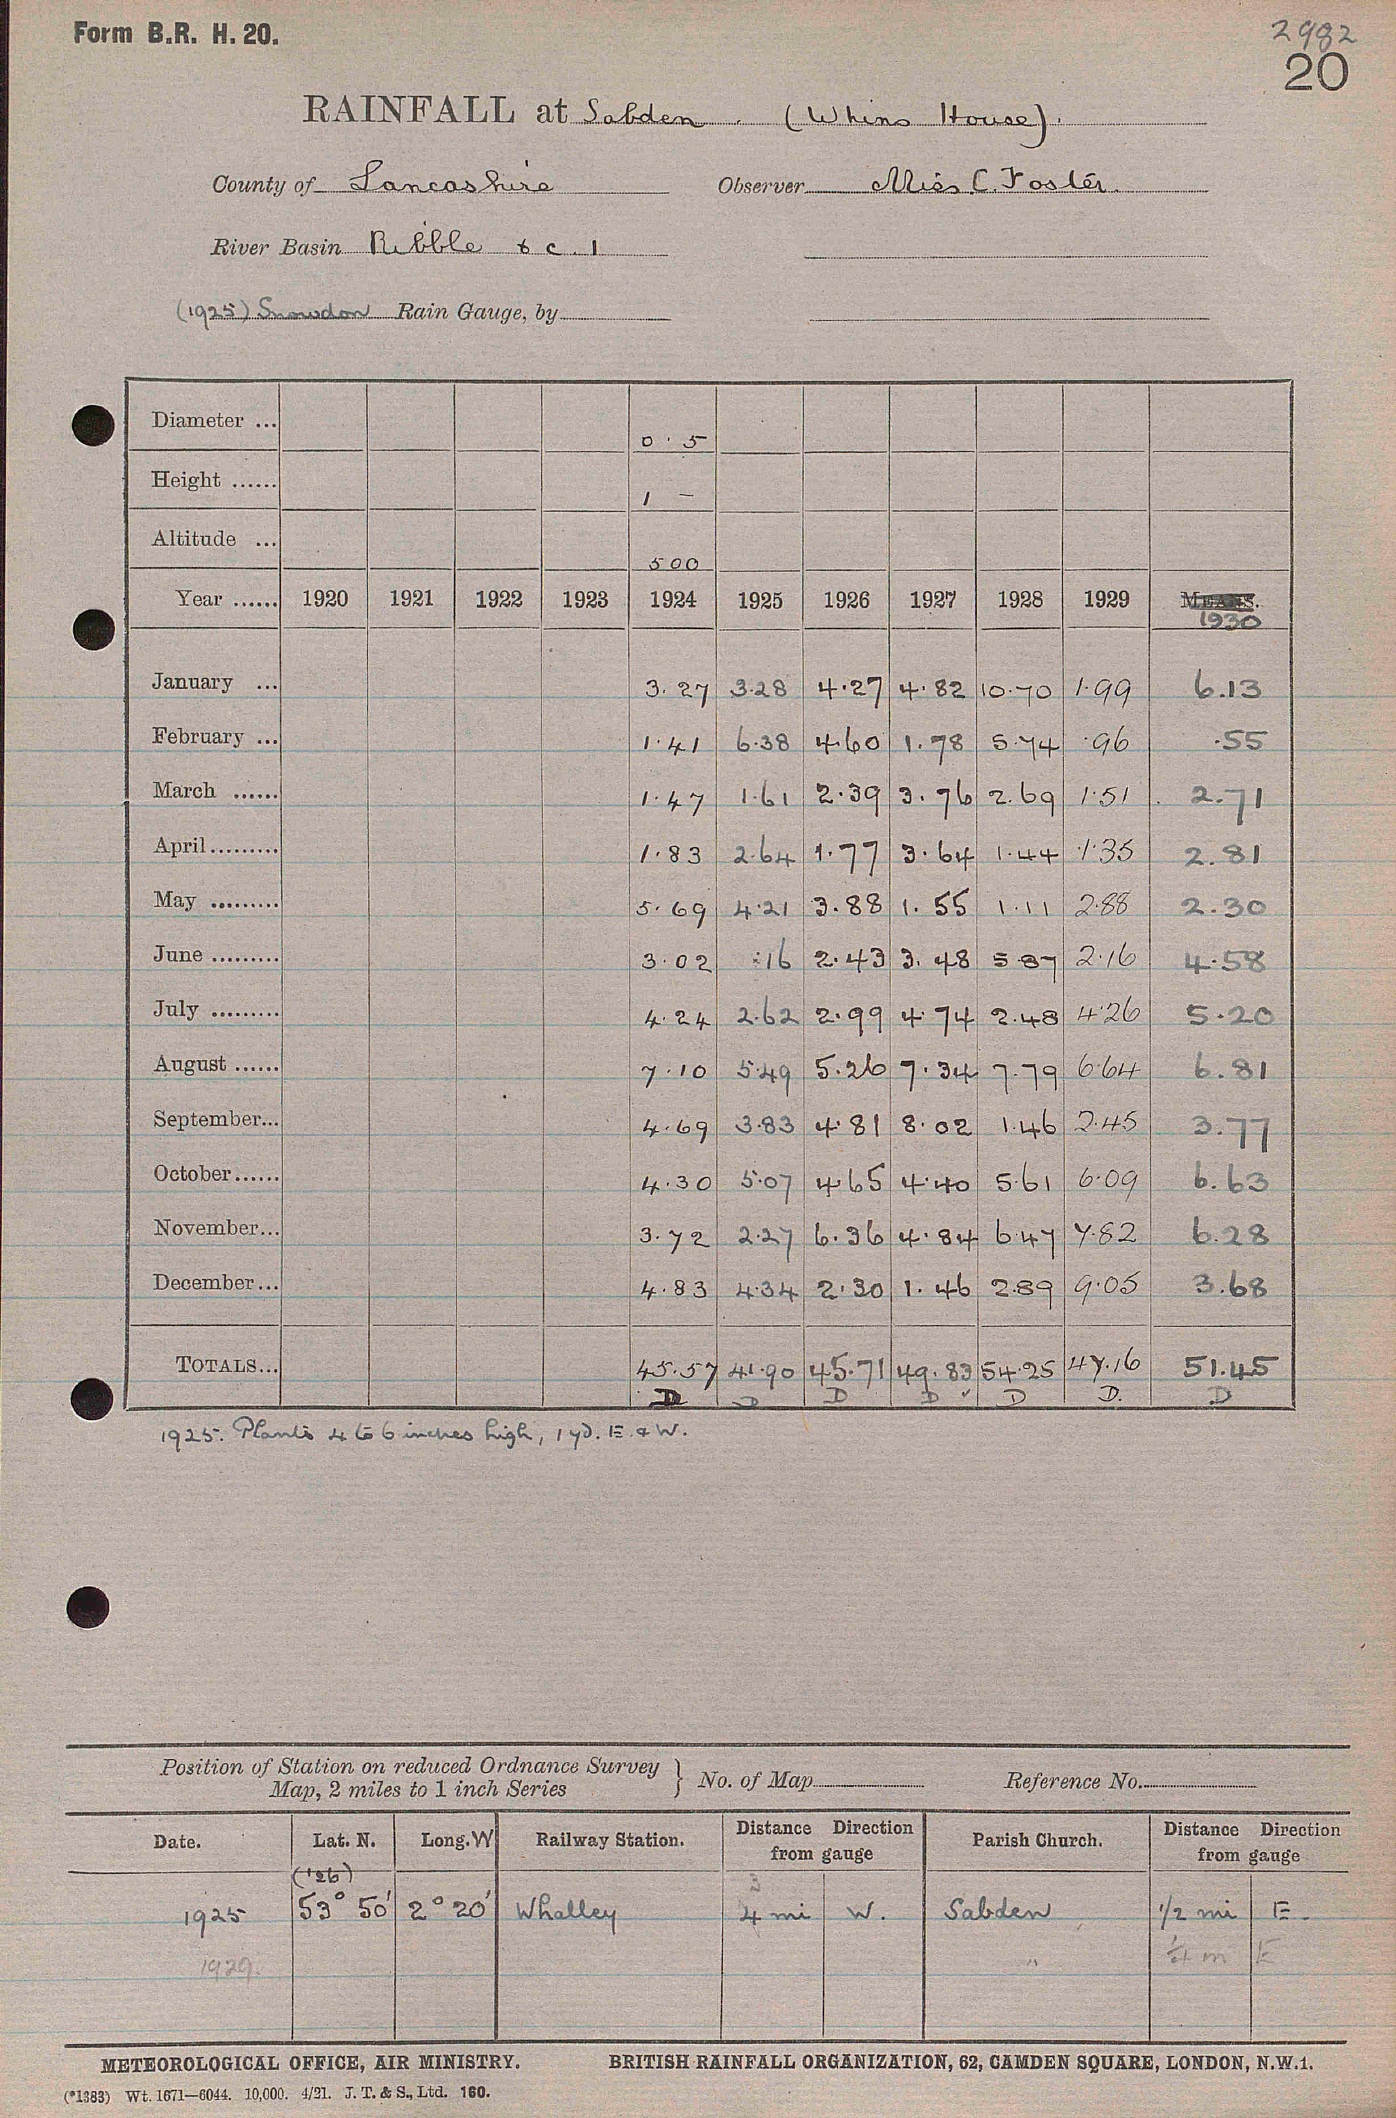 Form B.R. H. 20.
2982
20
RAINFALL at Sabden . (Whins House).
County of Lancashire Observer Miss C. Foster.
River Basin Ribble &c. 1
(1925) Snowdon Rain Gauge, by
Diameter ... 0 . 5
Height ...... 1 -
Altitude ... 500
Year ...... 1920 1921 1922 1923 1924 1925 1926 1927 1928 1929 MEANS.
1930
January ... 3.27 3.28 4.27 4.82 10.70 1.99 6.13
February ... 1.41 6.38 4.60 1.78 5.74 .96 .55
March ...... 1.47 1.61 2.39 3.76 2.69 1.51 2.71
April......... 1.83 2.64 1.77 3.64 1.44 1.35 2.81
May ......... 5.69 4.21 3.88 1.55 1.11 2.88 2.30
June ......... 3.02 .16 2.43 3.48 5.87 2.16 4.58
July ......... 4.24 2.62 2.99 4.74 2.48 4.26 5.20
August ...... 7.10 5.49 5.26 7.34 7.79 6.64 6.81
September... 4.69 3.83 4.81 8.02 1.46 2.45 3.77
October...... 4.30 5.07 4.65 4.40 5.61 6.09 6.63
November... 3.72 2.27 6.36 4.84 6.47 7.82 6.28
December... 4.83 4.34 2.30 1.46 2.89 9.05 3.68
TOTALS... 45.57 41.90 45.71 49.83 54.25 47.16 51.45
D D D D D D. D
1925. Plants 4 to 6 inches high, 1 yd. E. & W.
Position of Station on reduced Ordnance Survey
Map, 2 miles to 1 inch Series } No. of Map Reference No.
Date. Lat. N. Long. W Railway Station. Distance Direction from gauge Parish Church. Distance Direction from gauge
('26) 3
1925 53° 50' 2° 20' Whalley 4 mi W. Sabden 1/2 mi E.
1929. " 1/4 m E
METEOROLOGICAL OFFICE, AIR MINISTRY. BRITISH RAINFALL ORGANIZATION, 62, CAMDEN SQUARE, LONDON, N.W.1.
(*1383) Wt. 1671—6044. 10,000. 4/21. J. T. & S., Ltd. 160.